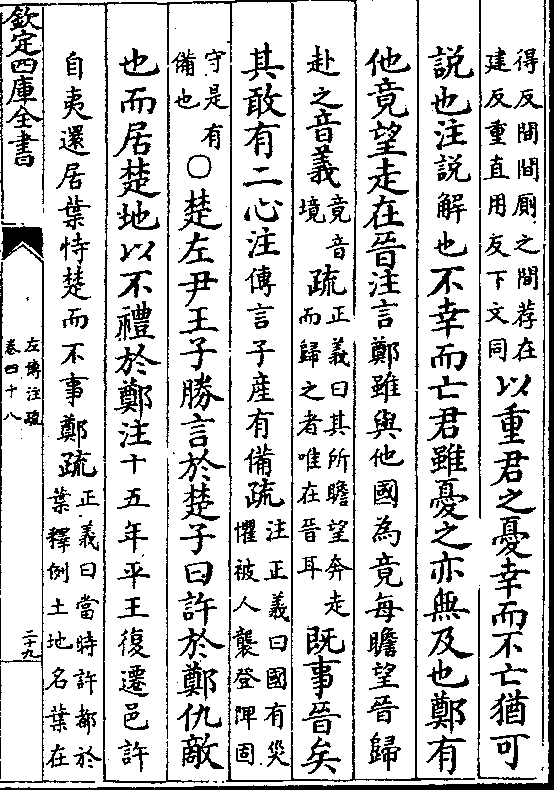 得反間間厠之間荐在
建反重直用反下文同
以重君之憂幸而不亡猶可
説也注説解也不幸而亡君雖憂之亦無及也鄭有
他竟望走在晉注言鄭雖與他國為竟每瞻望晉歸
赴之音義
竟音
境
疏
正義曰其所瞻望奔走
而歸之者唯在晉耳
既事晉矣
其敢有二心注傳言子產有備疏
注正義曰國有災
懼被人襲登陴固
守是有
備也
○楚左尹王子勝言於楚子曰許於鄭仇敵
也而居楚地以不禮於鄭注十五年平王復遷邑許
自夷還居葉恃楚而不事鄭疏
正義曰當時許都於
葉釋例土地名葉在
欽定四庫全書
左傳注疏
卷四十八
二十九